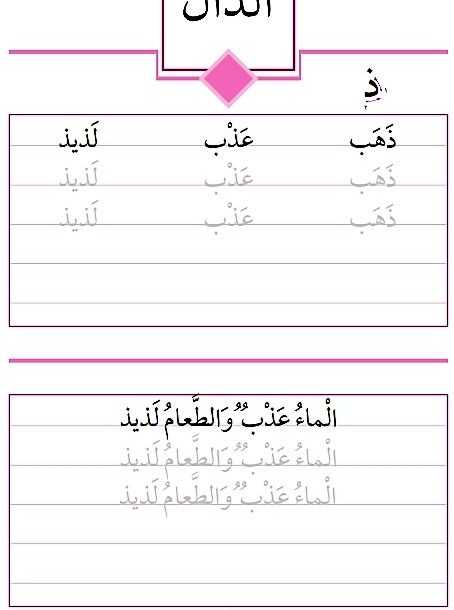 الذال
ذ
ذَهَب عَذْب لَذيذ
ذَهَب عَذْب لَذيذ
ذَهَب عَذْب لَذيذ
الْماءُ عَذْبٌ وَالطَّعامُ لَذيذ
الْماءُ عَذْبٌ وَالطَّعامُ لَذيذ
الْماءُ عَذْبٌ وَالطَّعامُ لَذيذ